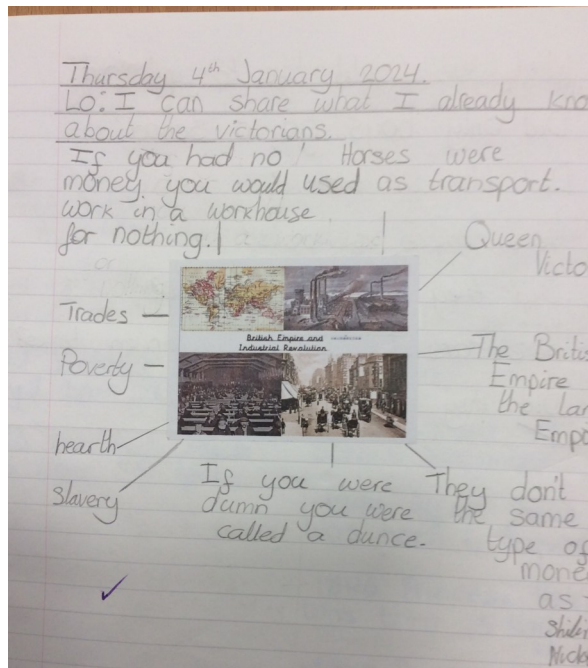 Thursday 4th January 2024.
Lo: I can share what I already kno
about the victorians.
If you had no
money you would
work in a workhouse
for nothing.
Horses were
used as transport.
Queen
Victo
Trades
Poverty
hearth
Slavery
British Empire and
Industrial Revolution
The Britis
Empire
the lar
Empi
If you were
dumn you were
called a dunce.
They don't
the same
type of
mone
as
Shilin